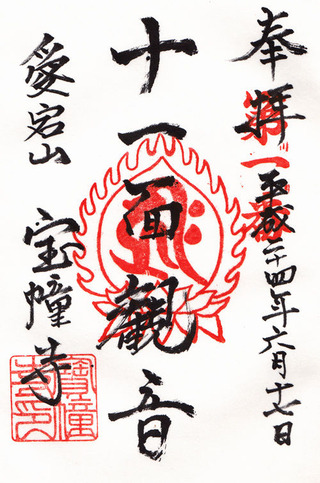 奉拝
平成二十四年六月十七日
十一面観音
愛宕山 宝幢寺
寶幢寺印